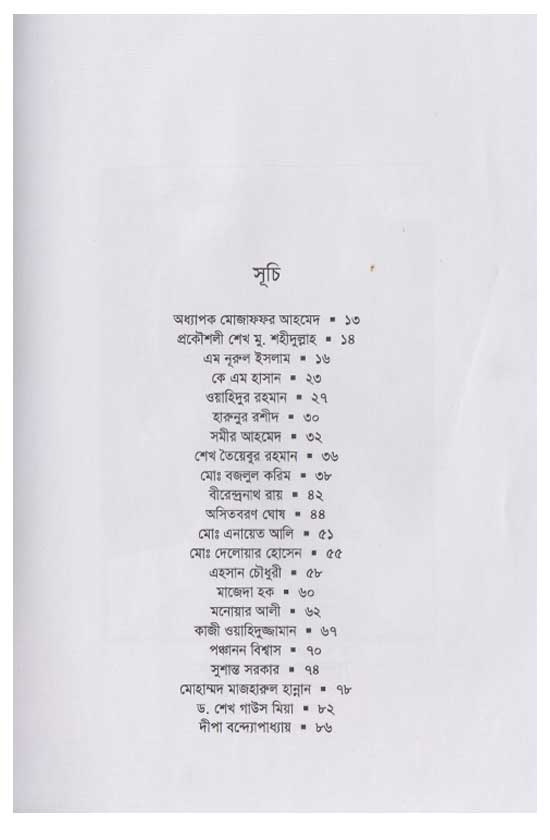 সূচি
অধ্যাপক মোজাফফর আহমেদ ▪ ১৩
প্রকৌশলী শেখ মু. শহীদুল্লাহ ▪ ১৪
এম নূরুল ইসলাম ▪ ১৬
কে এম হাসান ▪ ২৩
ওয়াহিদুর রহমান ▪ ২৭
হারুনুর রশীদ ▪ ৩০
সমীর আহমেদ ▪ ৩২
শেখ তৈয়েবুর রহমান ▪ ৩৬
মোঃ বজলুল করিম ▪ ৩৮
বীরেন্দ্রনাথ রায় ▪ ৪২
অসিতবরণ ঘোষ ▪ ৪৪
মোঃ এনায়েত আলি ▪ ৫১
মোঃ দেলোয়ার হোসেন ▪ ৫৫
এহসান চৌধুরী ▪ ৫৮
মাজেদা হক ▪ ৬০
মনোয়ার আলী ▪ ৬২
কাজী ওয়াহিদুজ্জামান ▪ ৬৭
পঞ্চানন বিশ্বাস ▪ ৭০
সুশান্ত সরকার ▪ ৭৪
মোহাম্মদ মাজহারুল হান্নান ▪ ৭৮
ড. শেখ গাউস মিয়া ▪ ৮২
দীপা বন্দ্যোপাধ্যায় ▪ ৮৬